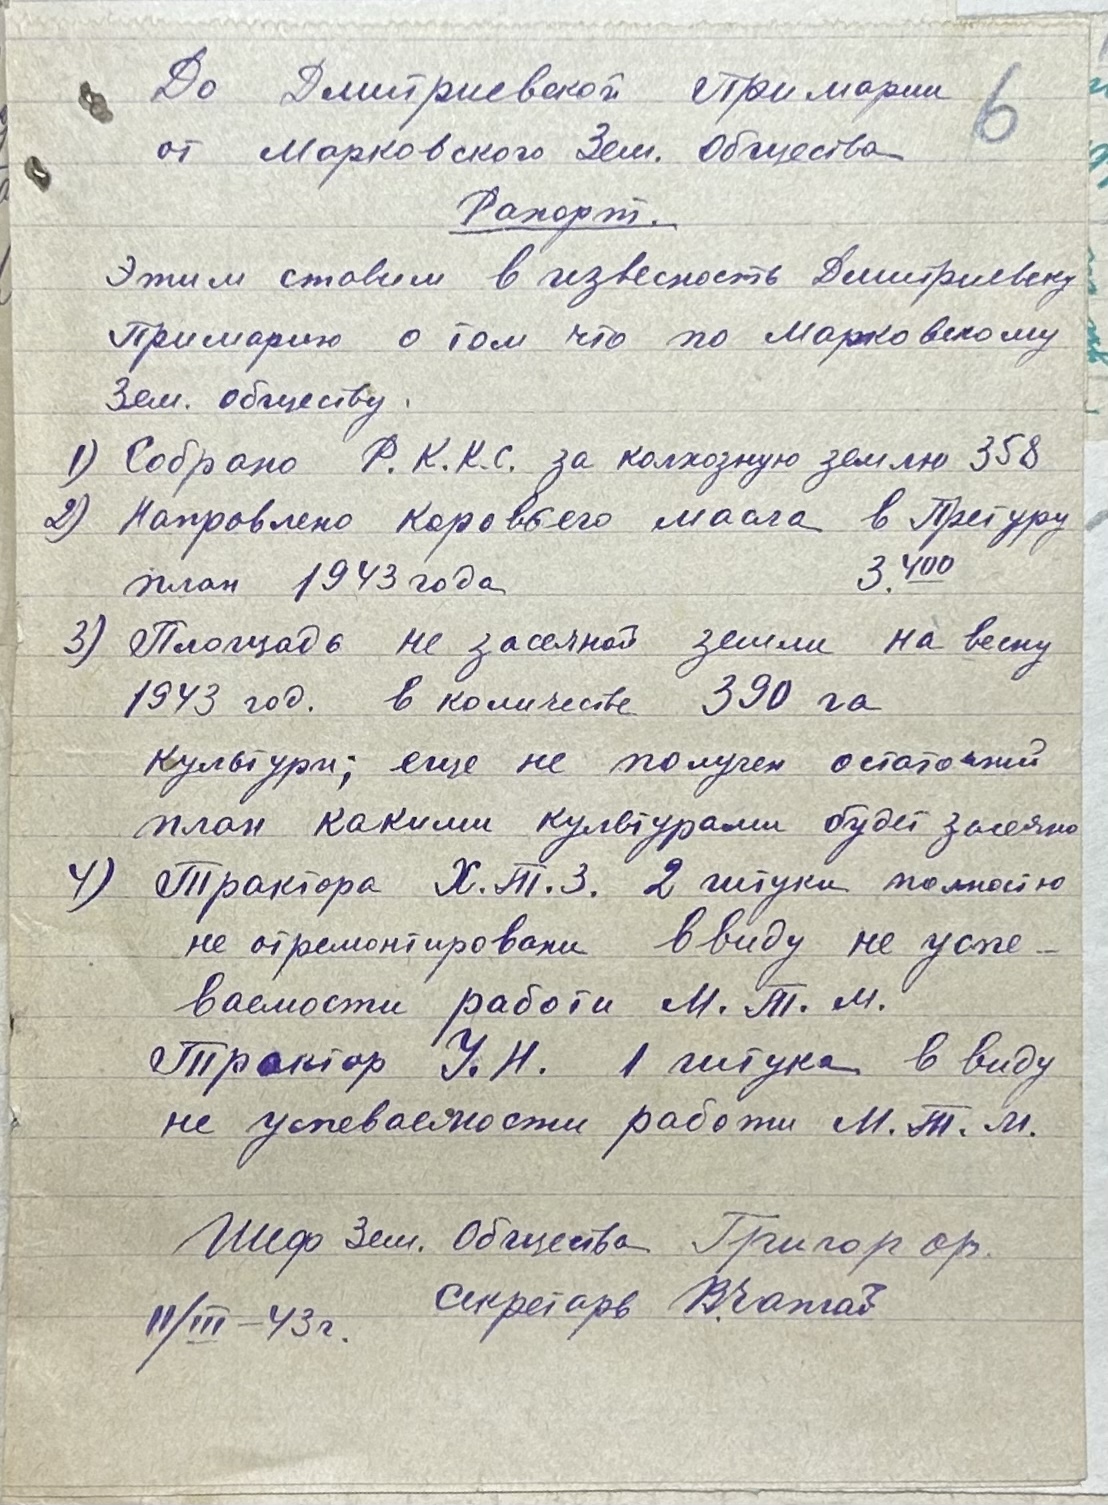 До Дмитриевской Примарии
6
от Марковского Зем. Общества
Рапорт.
Этим ставим в извесность Дмитриевску
Примарию о том что по Марковскому
Зем. обществу.
1) Собрано Р.К.К.С. за колхозную землю 358
2) Направлено коровьего масла в Претуру
план 1943 года 3.400
3) Площадь не засеяной земли на весну
1943 год. в количестве 390 га
культури; еще не получен остаточний
план какими культурами будет засеяно
4) Трактора Х.Т.З. 2 штуки полностю
не отремонтировани ввиду не успе-
ваемости работи М.Т.М.
Трактор У.Н. 1 штука в виду
не успеваемости работи М.Т.М.
Шеф Зем. Общества Григор
Секретарь
11/III–43 г.